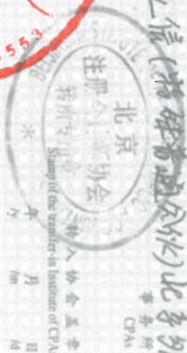 信(特殊普通合伙)北京
事务所
CPAs
北京
注册会计师协会
转所专用章
转入协会盖章
Stamp of the transfer-in Institute of CPAs
年 月 日
/y /m /d
5553